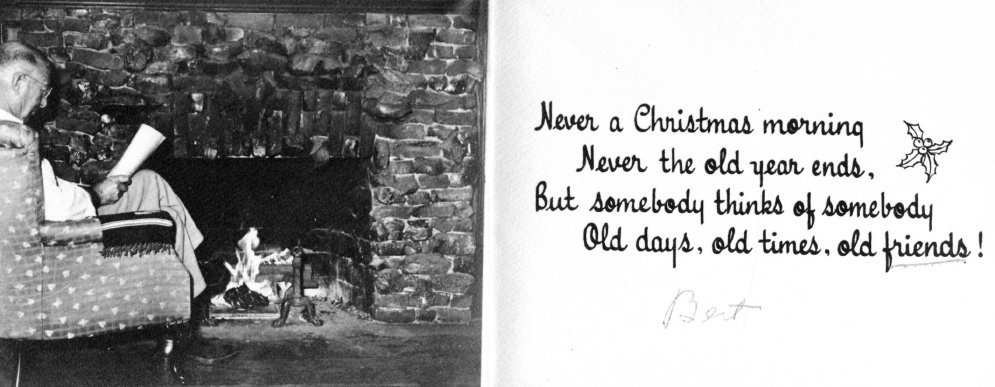 Never a Christmas morning
Never the old year ends,
But somebody thinks of somebody
Old days, old times, old friends!
Bert